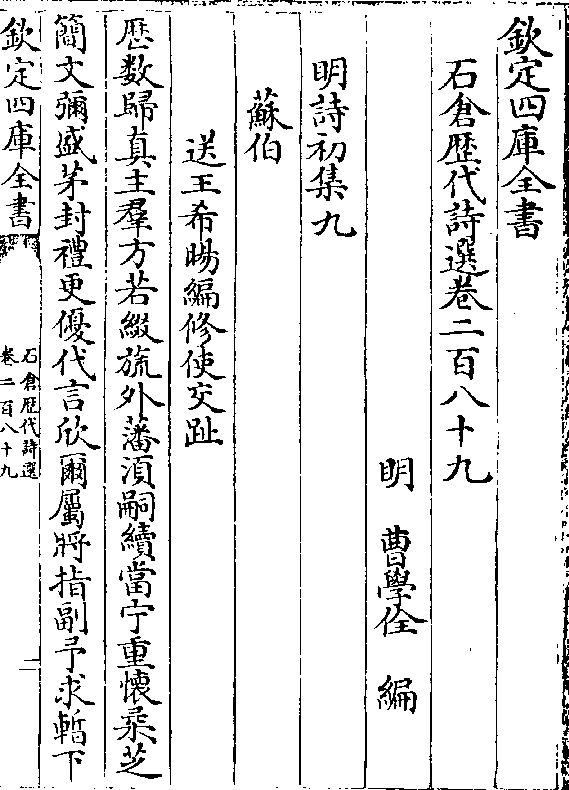 欽定四庫全書
石倉歷代詩選卷二百八十九
明 曹學佺 編
明詩初集九
蘇伯
送王希暘編修使交趾
歷數歸真主羣方若綴旒外藩須嗣續當宁重懷柔芝
簡文彌盛茅封禮更優代言欣爾屬將指副予求暫下
欽定四庫全書
石倉歷代詩選
卷二百八十九
一